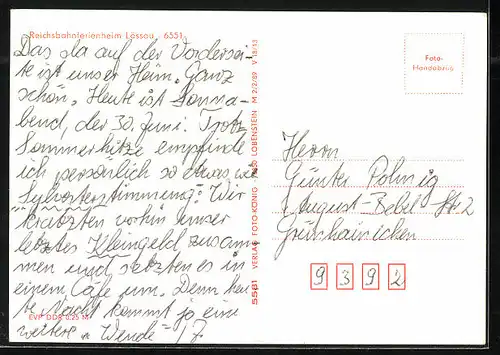 Reichsbahnferienheim Lössau 6551
Das da auf der Vordersei-
te ist unser Heim. Ganz
schön. Heute ist Sonna-
bend, der 30. Juni. Trotz
Sommerhitze empfinde
ich persönlich so etwas wie
"Sylvesterstimmung": Wir
kratzten vorhin unser
letztes Kleingeld zusam
men und setzten es in
einem Café um. Denn heu-
te Nacht kommt ja eine
weitere "Wende" !
EVP DDR 0,25 M
5581 VERLAG FOTO-KÖNIG LOBENSTEIN M 2/2/89 V 18/13
Foto-
Handabzug
Herrn
Günter
August-Bebel-Str. 2
Grünhainichen
9392